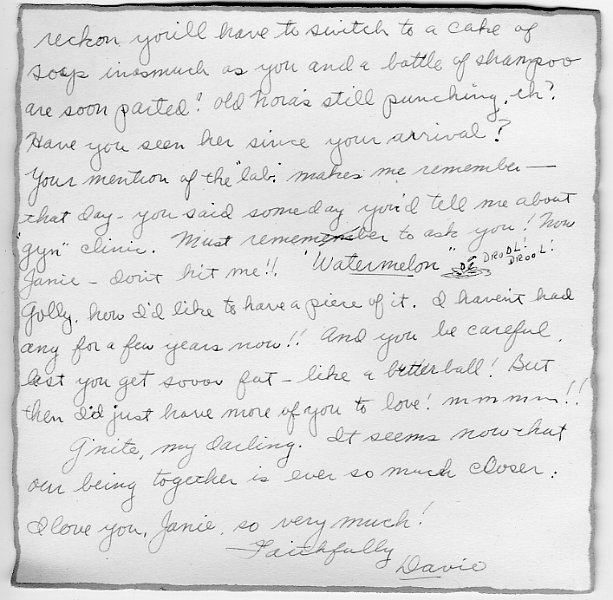 reckon you'll have to switch to a cake of
soap inasmuch as you and a bottle of shampoo
are soon parted! Old Nora's still punching, eh?
Have you seen her since your arrival?
Your mention of the "lab." makes me remember —
that day - you said someday you'd tell me about
"gyn" clinic. Must remember to ask you! Now
Janie - don't hit me!! "Watermelon" DROOL! DROOL!
Golly, how I'd like to have a piece of it. I haven't had
any for a few years now!! And you be careful,
lest you get sooo fat - like a butterball! But
then I'd just have more of you to love! mmmm!!
G'nite, my darling. It seems now that
our being together is ever so much closer.
I love you, Janie, so very much!
Faithfully
Davie